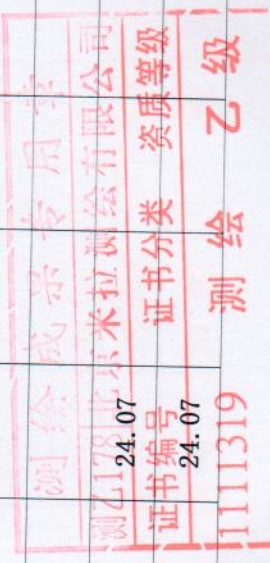 测绘成果专用章
测乙1781北京米拉测绘有限公司
证书编号 证书分类 资质等级
1111319 测绘 乙级
24.07
24.07